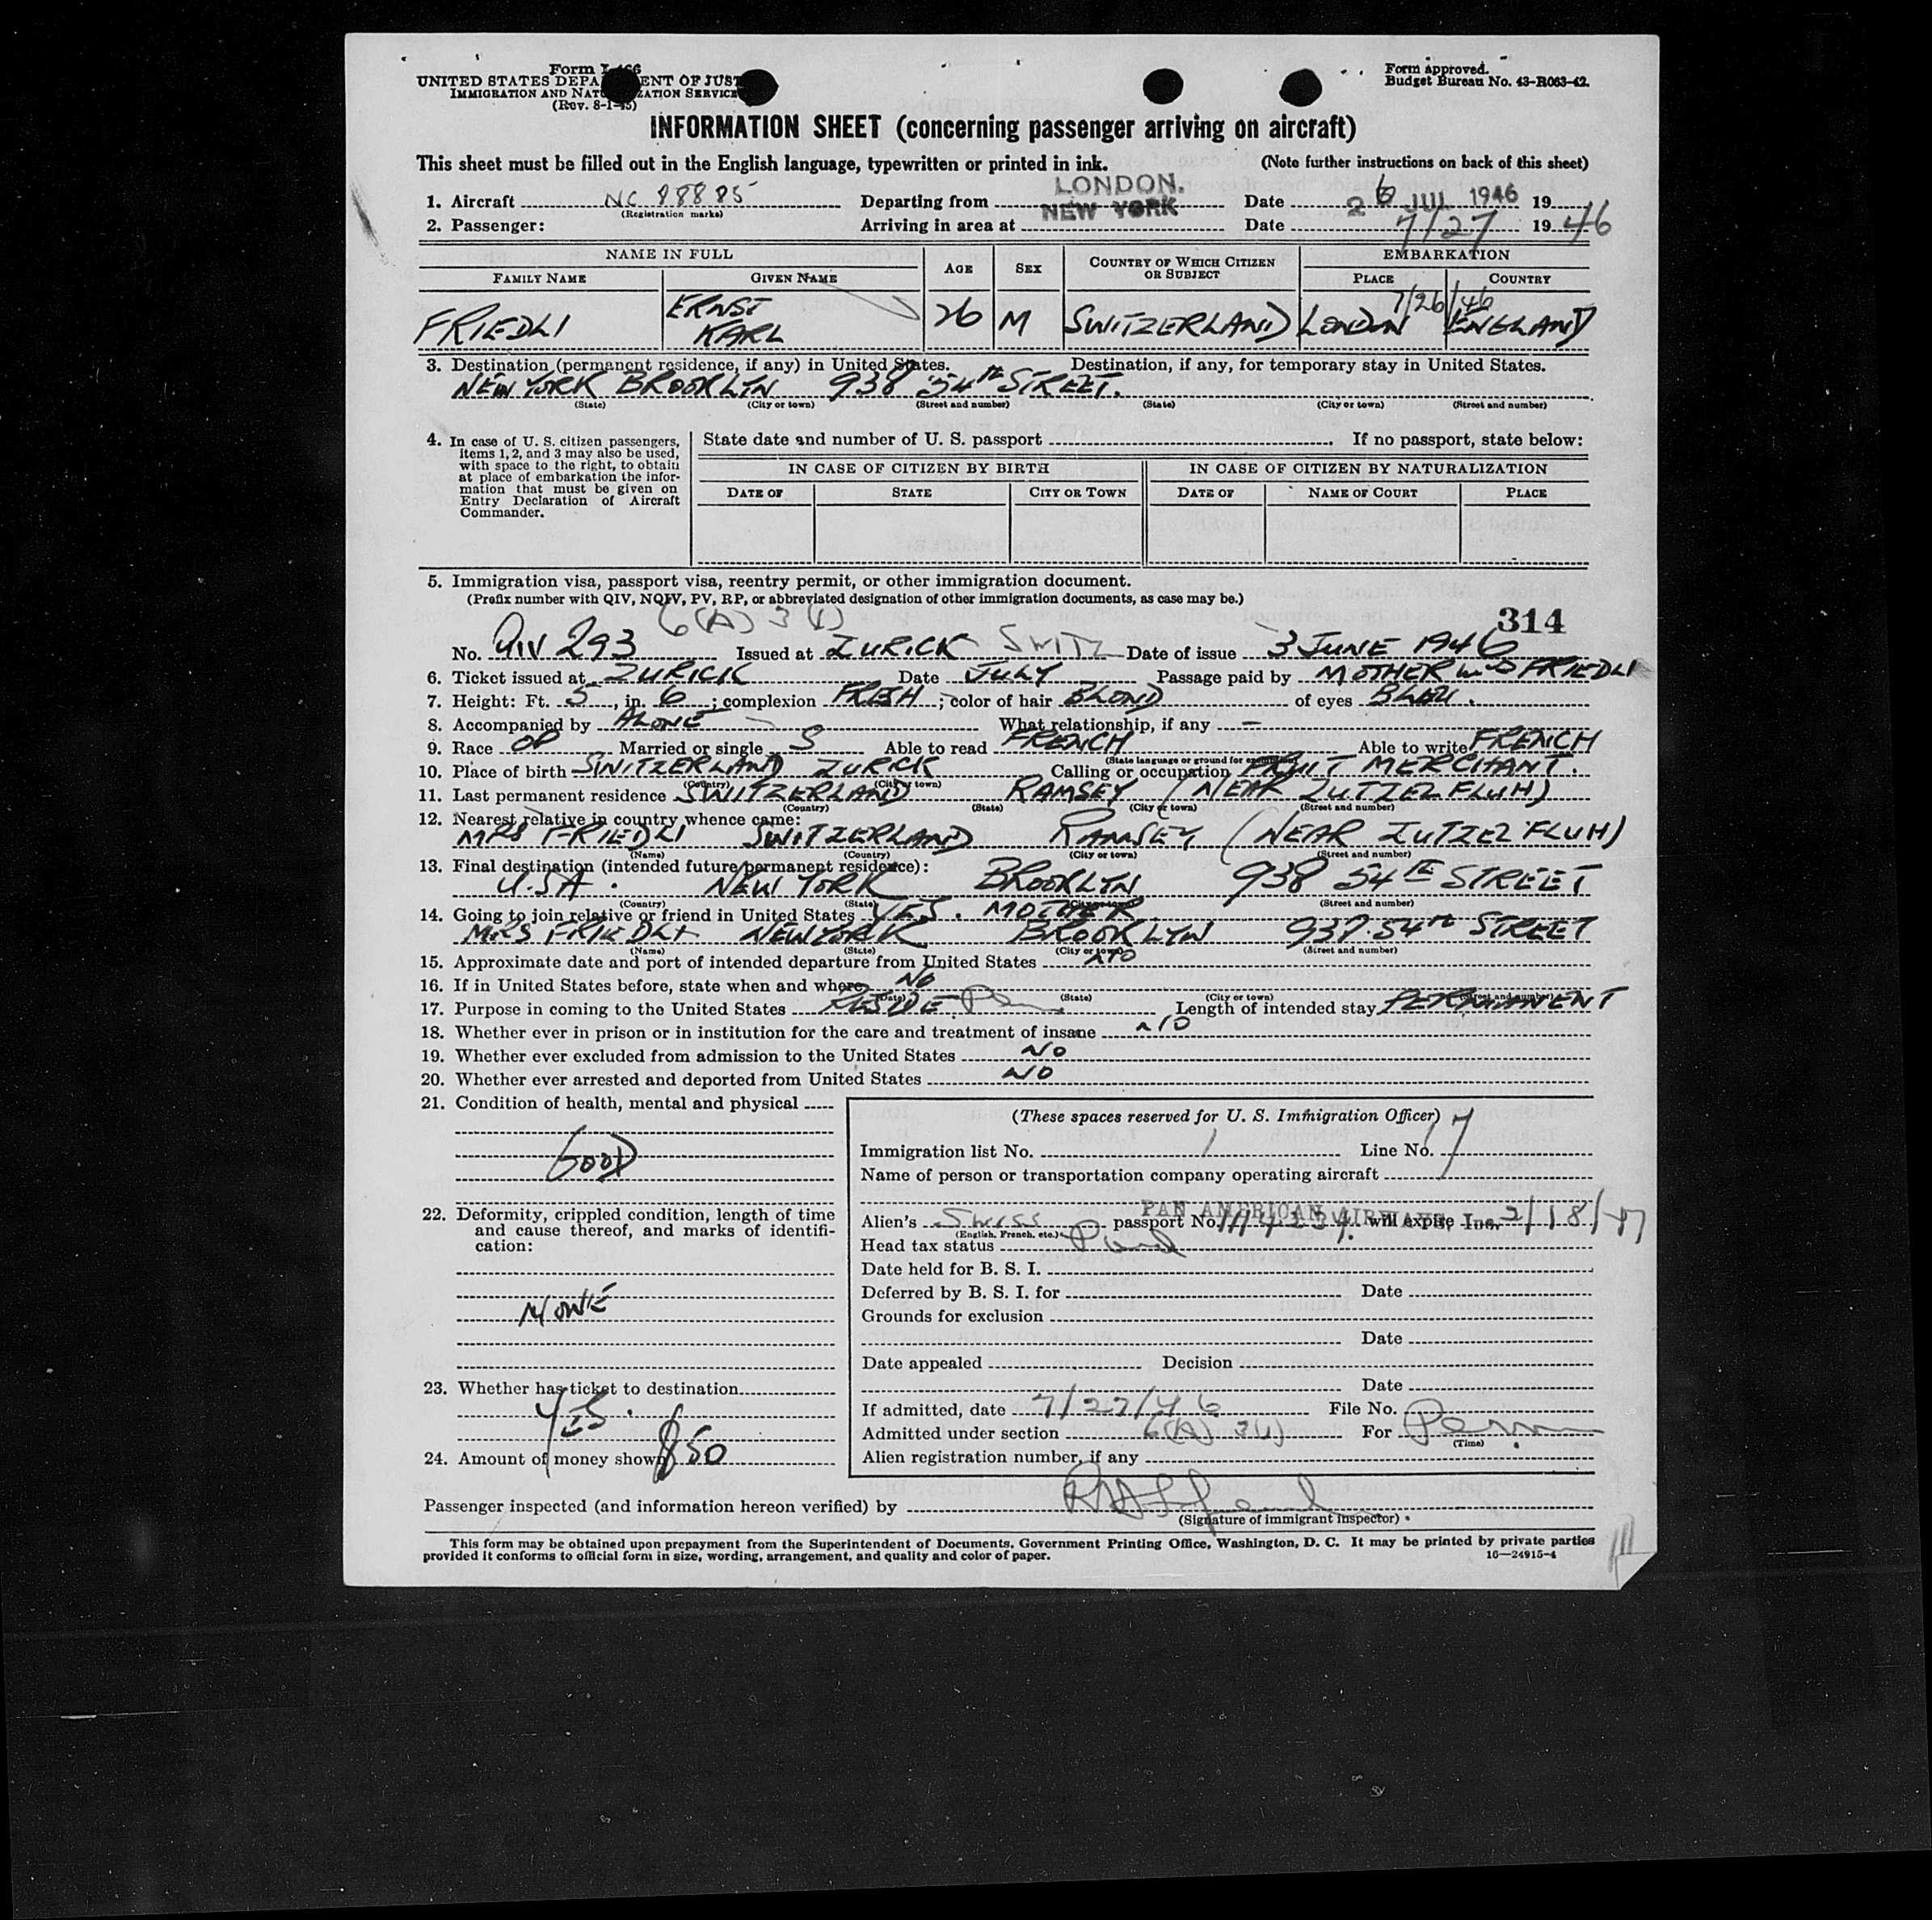 Form I-466
UNITED STATES DEPARTMENT OF JUSTICE
IMMIGRATION AND NATURALIZATION SERVICE
(Rev. 8-1-45)
Form approved.
Budget Bureau No. 43-R063-42.
INFORMATION SHEET (concerning passenger arriving on aircraft)
This sheet must be filled out in the English language, typewritten or printed in ink. (Note further instructions on back of this sheet)
1. Aircraft NC 88885 Departing from LONDON. Date 26 JUL 1946 19
(Registration marks)
2. Passenger: Arriving in area at NEW YORK Date 7/27 1946
NAME IN FULL AGE SEX COUNTRY OF WHICH CITIZEN OR SUBJECT EMBARKATION
FAMILY NAME GIVEN NAME PLACE COUNTRY
7/26/46
FRIEDLI ERNST KARL 26 M SWITZERLAND LONDON ENGLAND
3. Destination (permanent residence, if any) in United States. Destination, if any, for temporary stay in United States.
NEW YORK BROOKLYN 938 54TH STREET.
(State) (City or town) (Street and number) (State) (City or town) (Street and number)
4. In case of U. S. citizen passengers, items 1, 2, and 3 may also be used, with space to the right, to obtain at place of embarkation the information that must be given on Entry Declaration of Aircraft Commander.
State date and number of U. S. passport . If no passport, state below:
IN CASE OF CITIZEN BY BIRTH IN CASE OF CITIZEN BY NATURALIZATION
DATE OF STATE CITY OR TOWN DATE OF NAME OF COURT PLACE
5. Immigration visa, passport visa, reentry permit, or other immigration document.
(Prefix number with QIV, NQIV, PV, RP, or abbreviated designation of other immigration documents, as case may be.)
6(A) 3 (1) 314
No. QIV 293 Issued at ZURICK SWITZ Date of issue 3 JUNE 1946
6. Ticket issued at ZURICK Date JULY Passage paid by MOTHER FRIEDLI
7. Height: Ft. 5, in. 6; complexion FRESH; color of hair BLOND of eyes BLAU.
8. Accompanied by ALONE What relationship, if any —
9. Race Married or single S Able to read FRENCH Able to write FRENCH
(State language or ground for exemption)
10. Place of birth SWITZERLAND ZURICK Calling or occupation FRUIT MERCHANT.
(Country) (City or town)
11. Last permanent residence SWITZERLAND RAMSEY (NEAR LUTZELFLUH)
(Country) (State) (City or town) (Street and number)
12. Nearest relative in country whence came:
MRS FRIEDLI SWITZERLAND RAMSEY (NEAR LUTZELFLUH)
(Name) (Country) (City or town) (Street and number)
13. Final destination (intended future permanent residence):
U.S.A. NEW YORK BROOKLYN 938 54TH STREET
(Country) (State) (City or town) (Street and number)
14. Going to join relative or friend in United States YES. MOTHER
MRS FRIEDLI NEW YORK BROOKLYN 938 54TH STREET
(Name) (State) (City or town) (Street and number)
15. Approximate date and port of intended departure from United States NO
16. If in United States before, state when and where NO
(Date) (State) (City or town) (Street and number)
17. Purpose in coming to the United States RESIDE. Length of intended stay PERMANENT
18. Whether ever in prison or in institution for the care and treatment of insane NO
19. Whether ever excluded from admission to the United States NO
20. Whether ever arrested and deported from United States NO
21. Condition of health, mental and physical
GOOD
22. Deformity, crippled condition, length of time and cause thereof, and marks of identification:
NONE
23. Whether has ticket to destination
YES.
24. Amount of money shown $50
(These spaces reserved for U. S. Immigration Officer)
Immigration list No. 1 Line No. 7
Name of person or transportation company operating aircraft
PAN AMERICAN AIRWAYS, Inc.
Alien's Swiss passport No. will expire 2/18/47
(English, French, etc.)
Head tax status Paid
Date held for B. S. I.
Deferred by B. S. I. for Date
Grounds for exclusion
Date
Date appealed Decision
Date
If admitted, date 7/27/46 File No.
Admitted under section 6(A) 3(1) For Perm
(Time)
Alien registration number, if any
Passenger inspected (and information hereon verified) by
(Signature of immigrant inspector)
This form may be obtained upon prepayment from the Superintendent of Documents, Government Printing Office, Washington, D. C. It may be printed by private parties
provided it conforms to official form in size, wording, arrangement, and quality and color of paper. 16—24915-4